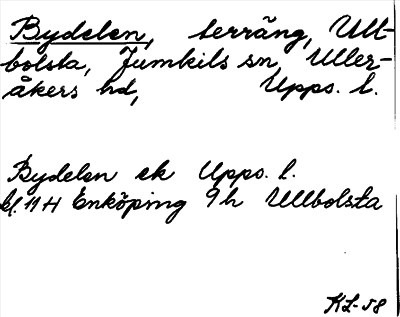 Bydelen, terräng, Ull-
bolsta, Jumkils sn, Uller-
åkers hd, Upps. l.
Bydelen ek Upps. l.
bl. 11H Enköping 9h Ullbolsta
KL-58